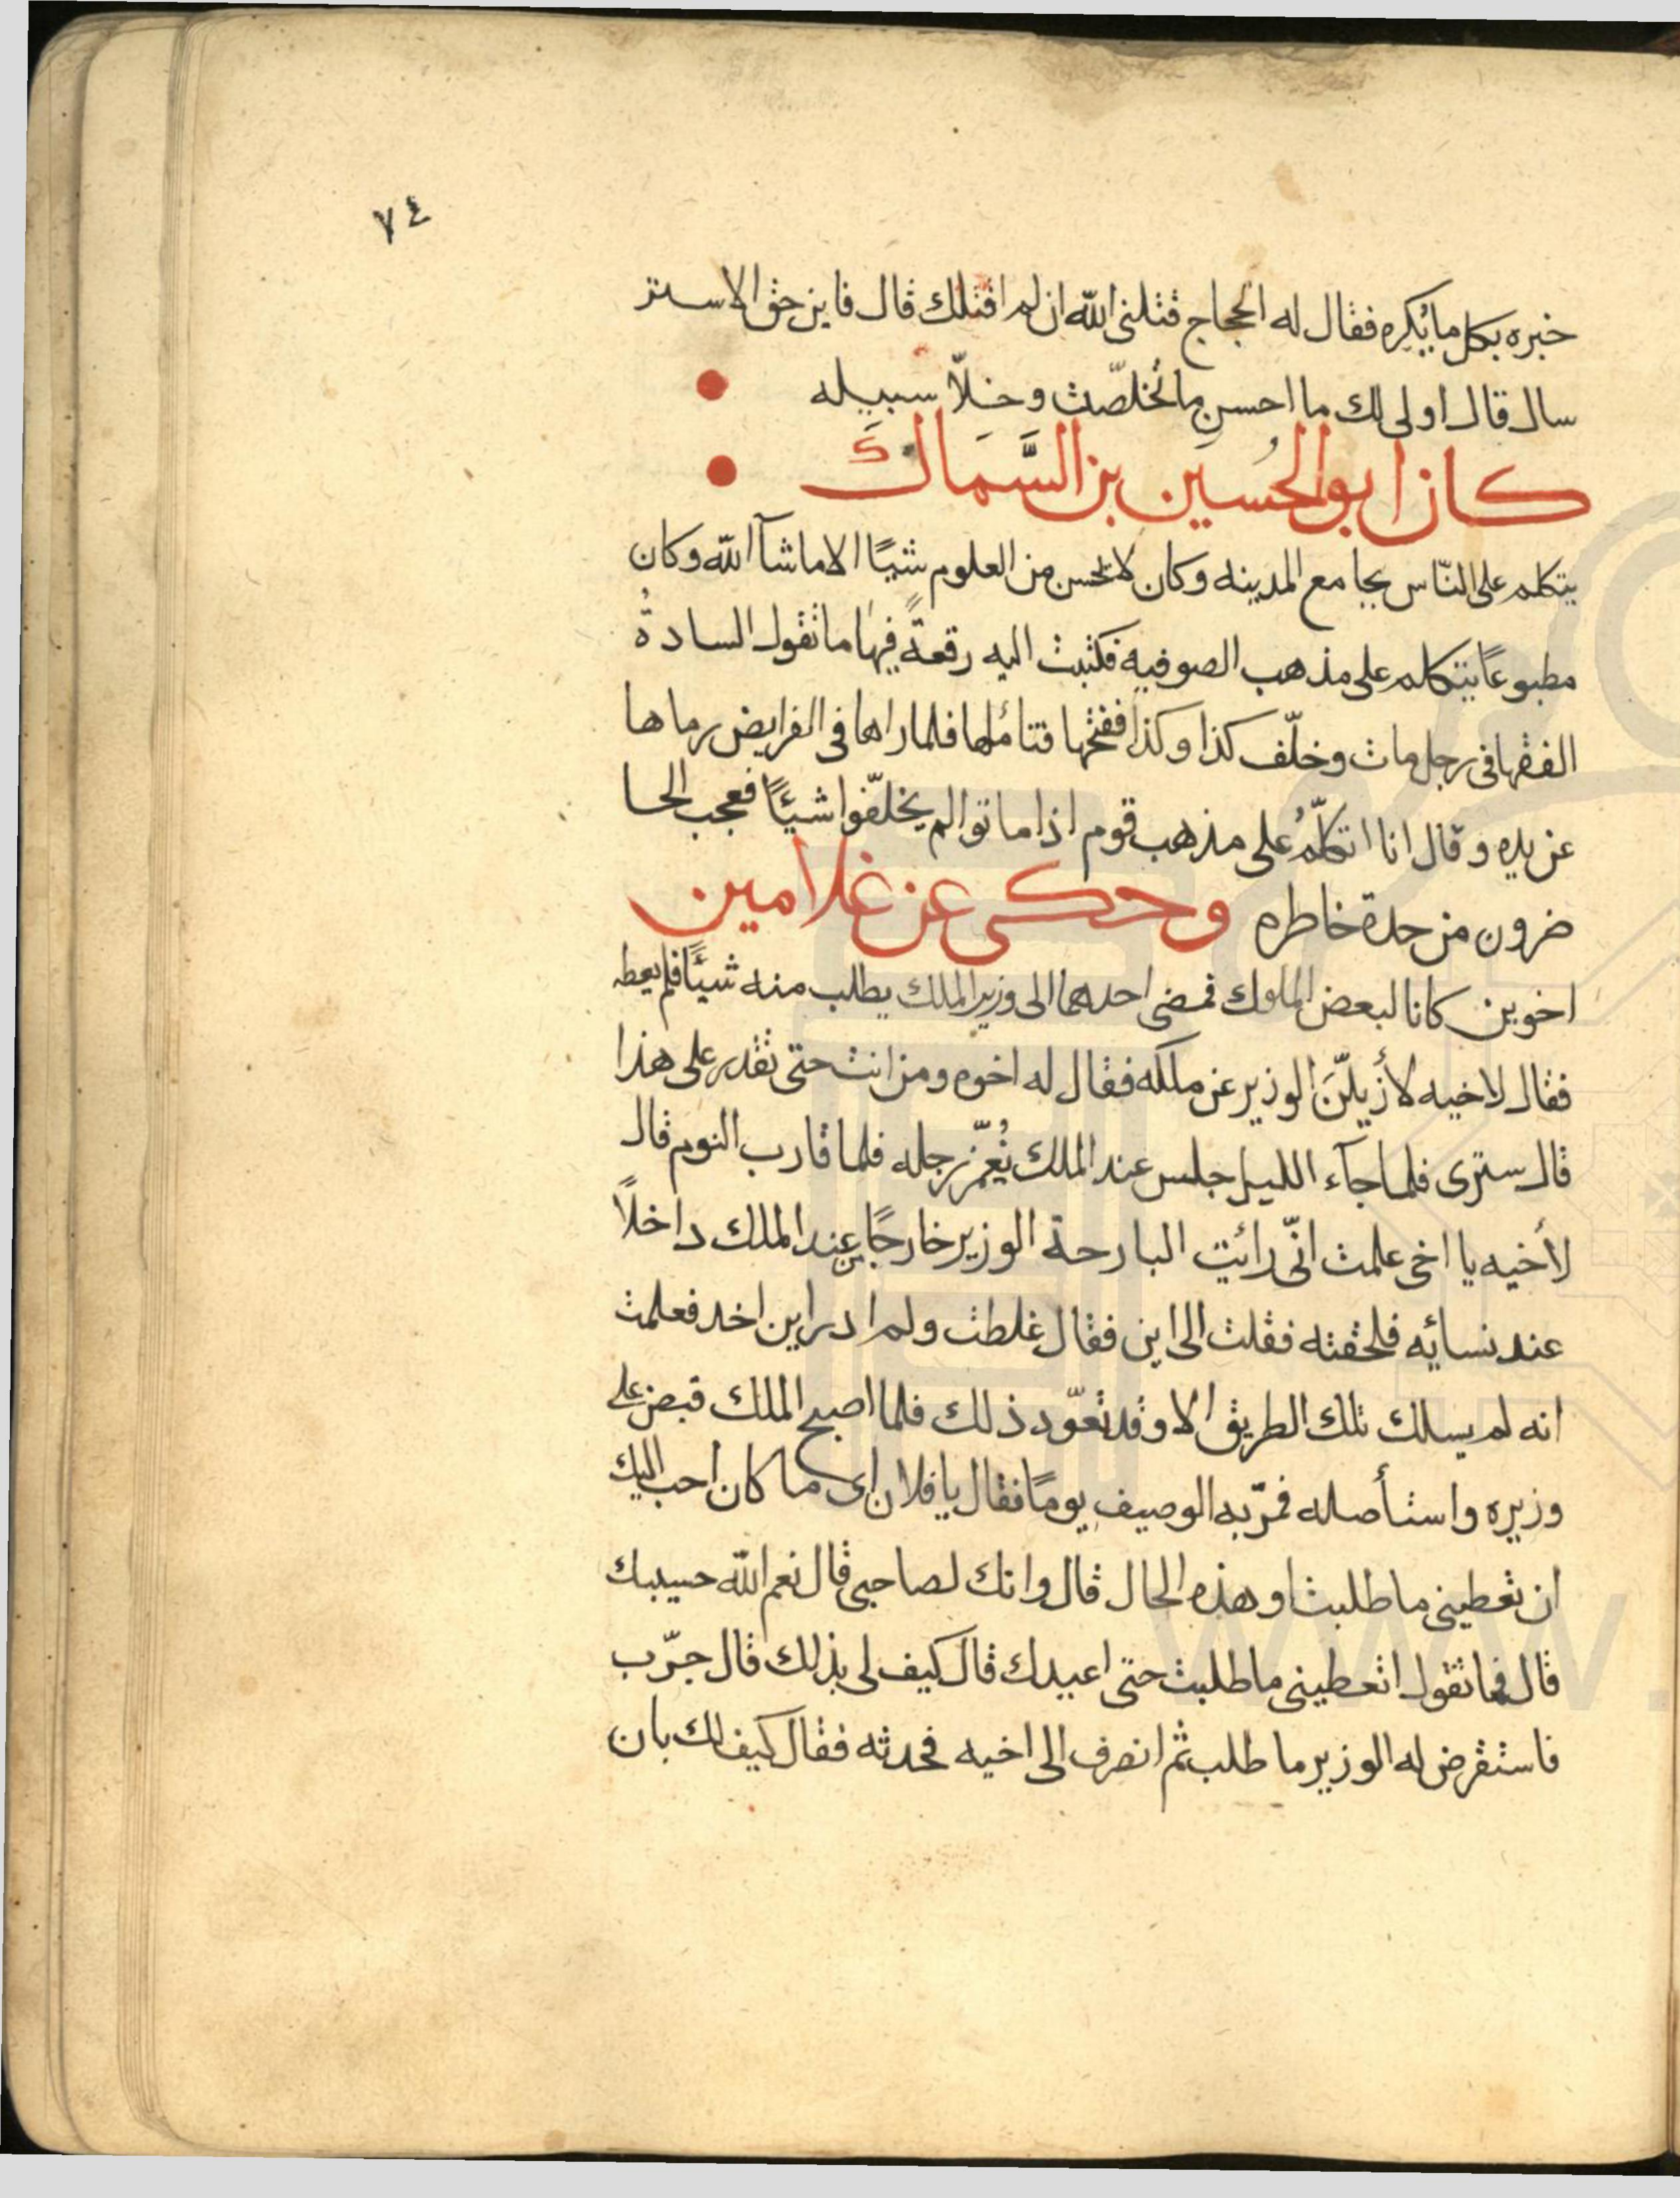 ٧٤
خبره بكل ما يُكره فقال له الحجاج قتلنى الله ان لم اقتلك قال فاين حق الاستر
سال قال اولى لك ما احسن ما تُخلصّت وخلاّ سبيله
كان ابو الحُسَين بن السَّمَاكَ
يتكلم على النّاس بجامع المدينه وكان لا يحسن من العلوم شيًا الا ما شآ الله وكان
مطبوعًا يتكلم على مذهب الصوفيه فكتبت اليه رقعةً فيها ما تقول السادةُ
الفقها فى رجل مات وخلّف كذا وكذا ففتحها فتاملها فلما راها فى الفرايض رماها
عن يده وقال انا اتكلّمُ على مذهب قوم اذا ماتوا لم يخلّفوا شيئًا فعجب الحا
ضرون من حدة خاطره وحكى عن غلامين
اخوين كانا لبعض الملوك فمضى احدهما الى وزير الملك يطلب منه شيًا فلم يعطه
فقال لاخيه لأزيلنّ الوزير عن ملكه فقال له اخوه ومن انت حتى تقدر على هذا
قال سترى فلما جآء الليل جلس عند الملك يُغمّز رجله فلما قارب النوم قال
لأخيه يا اخى علمت انّى رائيت البارحة الوزير خارجًا من عند الملك داخلاً
عند نسائه فلحقته فقلت الى اين فقال غلطت ولم ادر اين اخد فعلمت
انه لم يسلك تلك الطريق الا وقد تعوّد ذلك فلما اصبح الملك قبض على
وزيره واستأصله فمرّ به الوصيف يومًا فقال يا فلان اى ما كان احب اليك
ان تعطينى ما طلبت او هذه الحال قال وانك لصاحبى قال نعم الله حسيبك
قال فما تقول اتعطينى ما طلبت حتى اعيدك قال كيف لى بذلك قال جرّب
فاستقرض له الوزير ما طلب ثم انصرف الى اخيه فحدثه فقال كيف لك بان